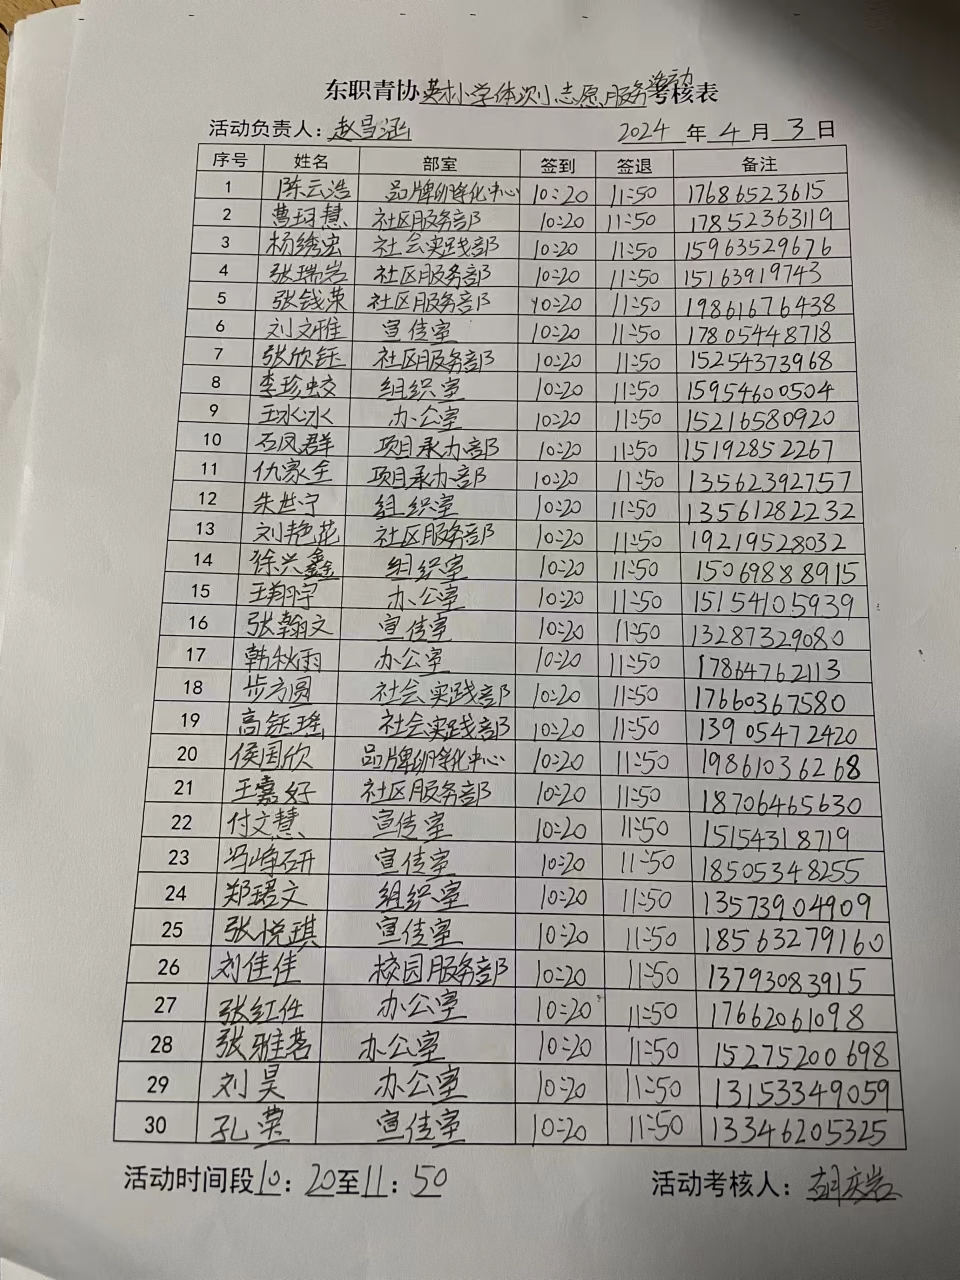 东职青协英才小学体测志愿服务活动考核表
活动负责人：赵昌涵 2024年4月3日
序号 姓名 部室 签到 签退 备注
1 陈云浩 品牌孵化中心 10:20 11:50 17686523615
2 曹珂慧 社区服务部 10:20 11:50 17852363119
3 杨绣宏 社会实践部 10:20 11:50 15963529676
4 张瑞岩 社区服务部 10:20 11:50 15163919743
5 张钱荣 社区服务部 10:20 11:50 19861676438
6 刘文雅 宣传室 10:20 11:50 17805448718
7 张欣钰 社区服务部 10:20 11:50 15254373968
8 李珍 组织室 10:20 11:50 15954600504
9 王冰冰 办公室 10:20 11:50 15216580920
10 石凤群 项目承办部 10:20 11:50 15192852267
11 仇家全 项目承办部 10:20 11:50 13562392757
12 朱世宁 组织室 10:20 11:50 13561282232
13 刘艳花 社区服务部 10:20 11:50 19219528032
14 徐兴鑫 组织室 10:20 11:50 15069888915
15 王翔宇 办公室 10:20 11:50 15154105939
16 张翰文 宣传室 10:20 11:50 13287329080
17 韩秋雨 办公室 10:20 11:50 17864762113
18 步方圆 社会实践部 10:20 11:50 17660367580
19 高钰瑶 社会实践部 10:20 11:50 13905472420
20 侯国欣 品牌孵化中心 10:20 11:50 19861036268
21 王嘉好 社区服务部 10:20 11:50 18706465630
22 付文慧 宣传室 10:20 11:50 15154318719
23 冯峥研 宣传室 10:20 11:50 18505348255
24 郑珺文 组织室 10:20 11:50 13573904909
25 张悦琪 宣传室 10:20 11:50 18563279160
26 刘佳佳 校园服务部 10:20 11:50 13793083915
27 张红任 办公室 10:20 11:50 17662061098
28 张雅茗 办公室 10:20 11:50 15275200698
29 刘昊 办公室 10:20 11:50 13153349059
30 孔荣 宣传室 10:20 11:50 13346205325
活动时间段10：20至11：50 活动考核人：胡庆岩